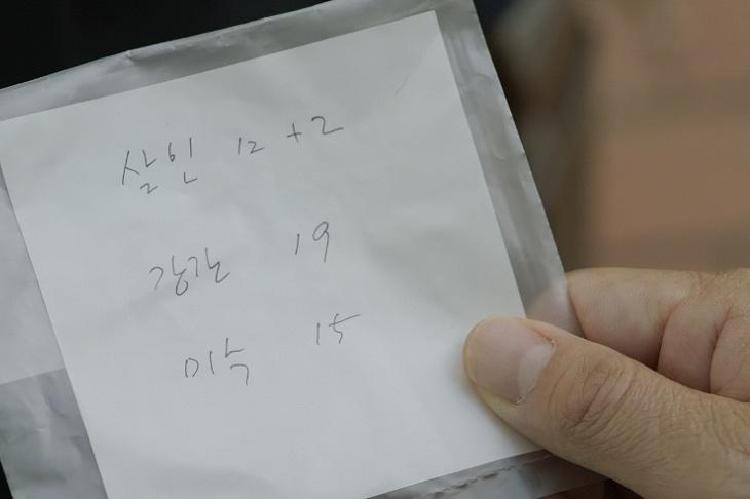 살인 12 +2
강간 19
미수 15